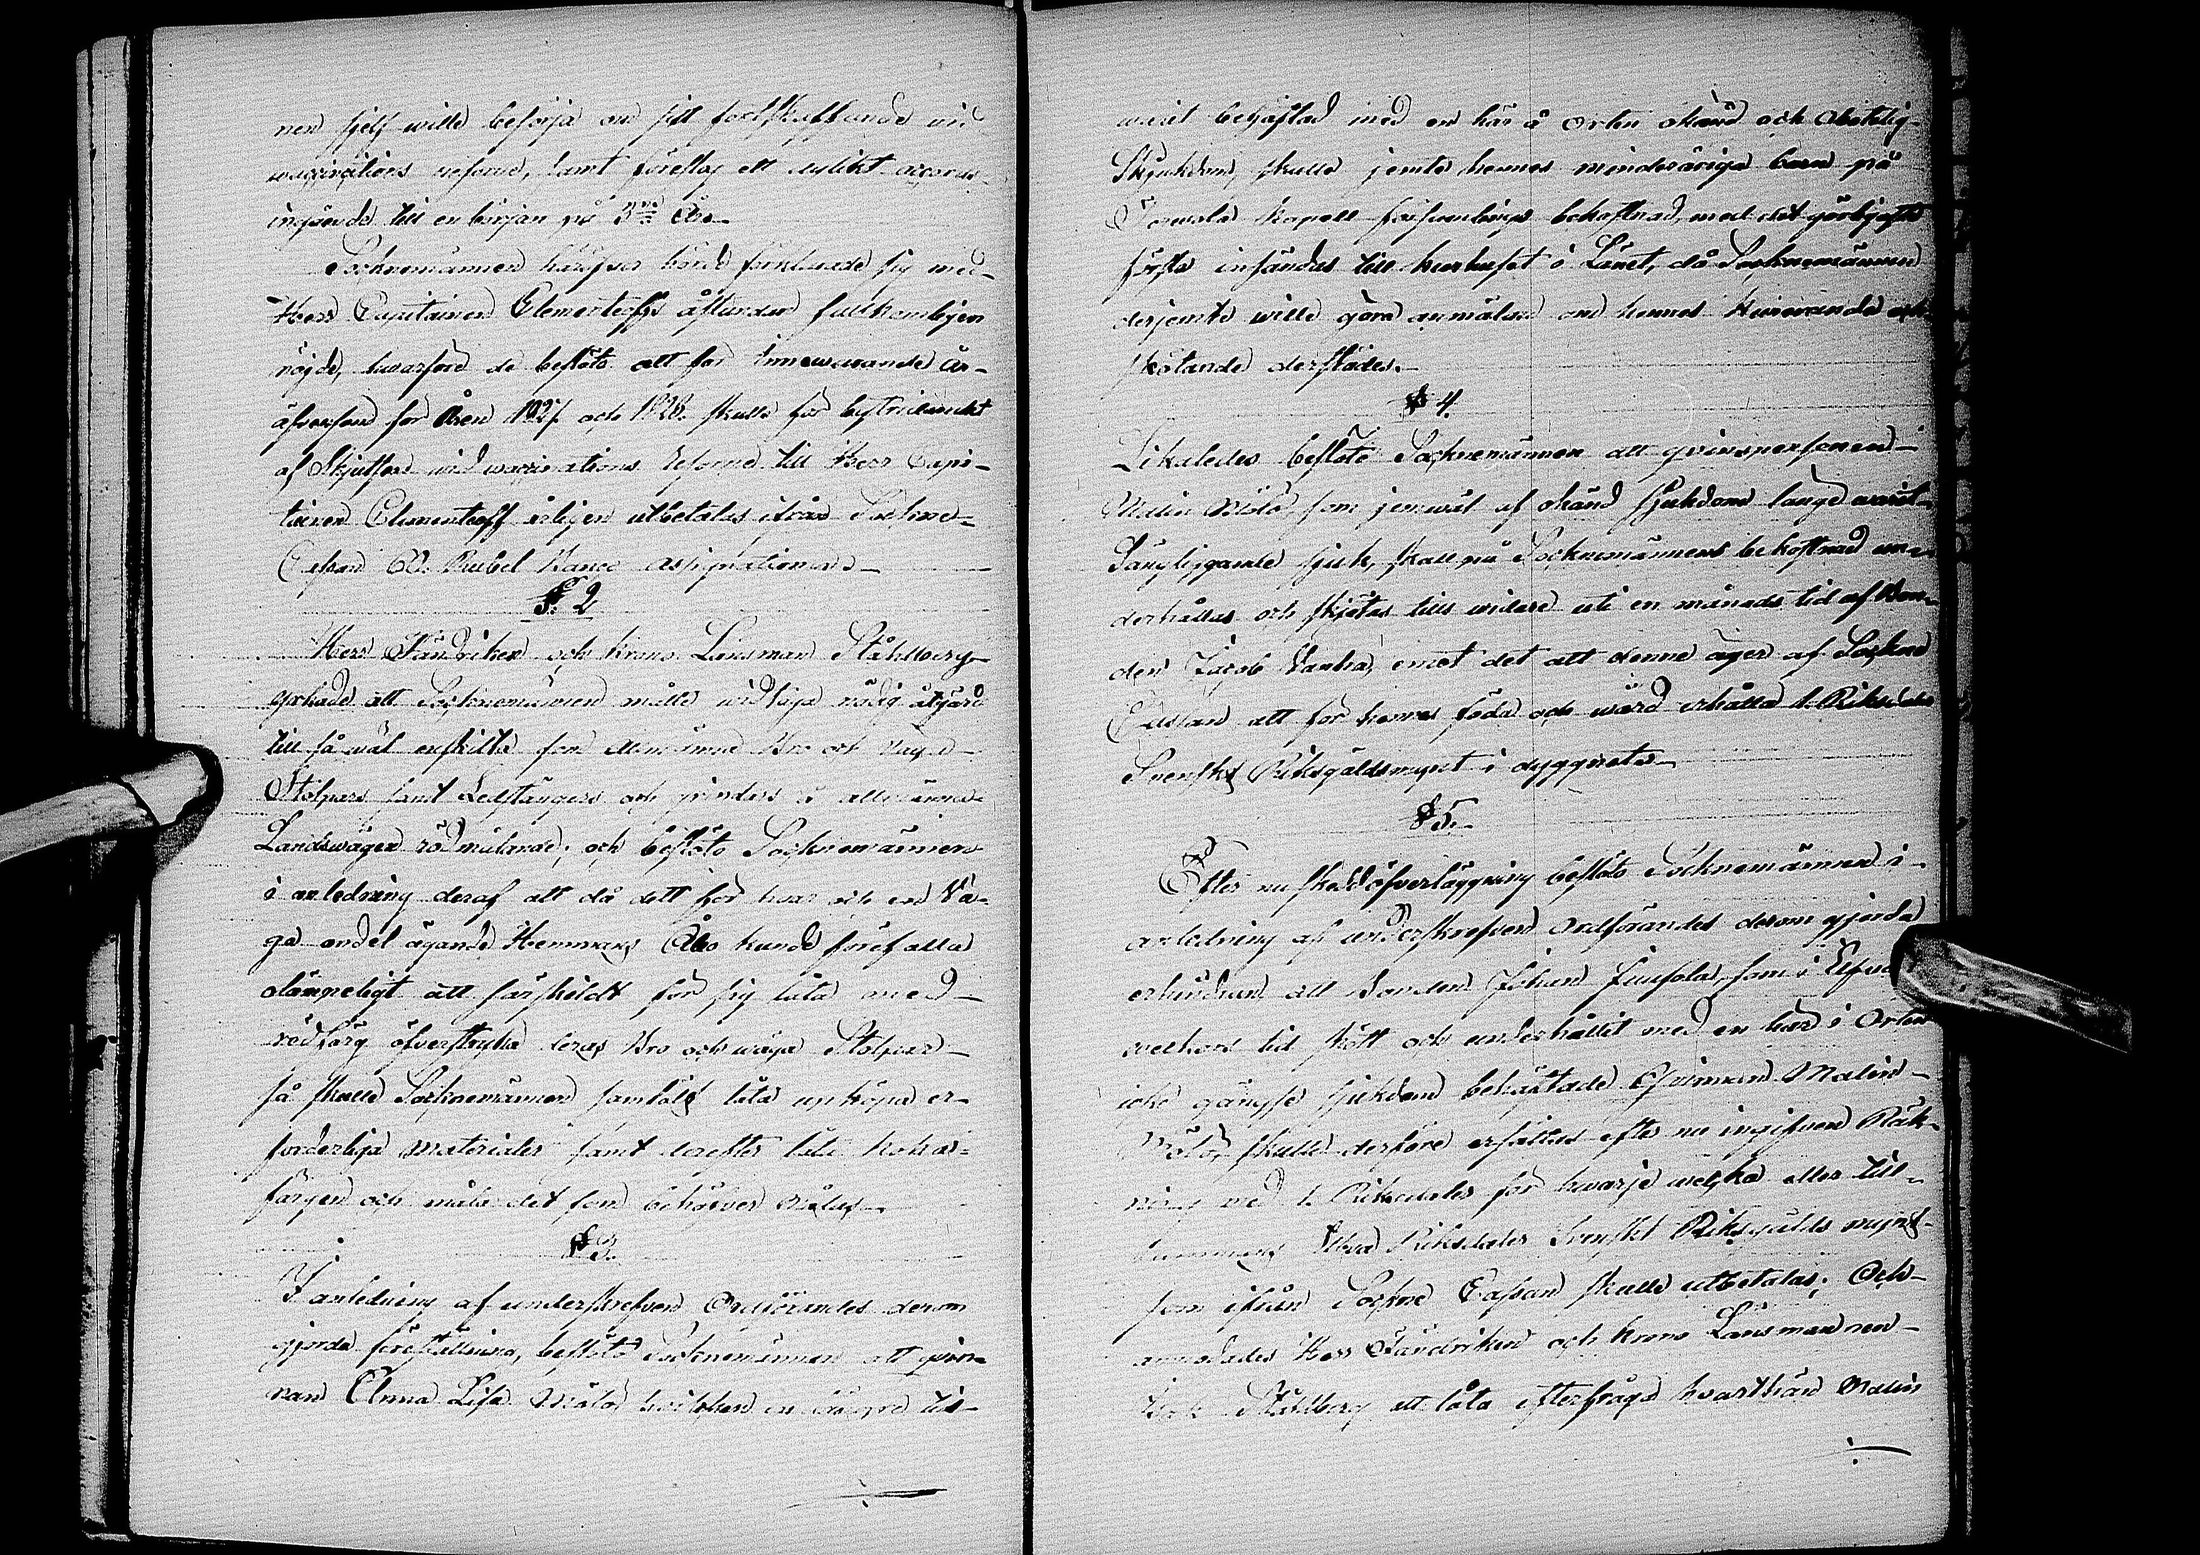 nen sjelf wille besörja om sitt fortskaffande vid
waccinations reforne, samt föreslog ett dylikt accord
ingående till en början på 3ne År
Socknemännen häröfver hörde förklarade sig med
Herr Capitainen Clementeoffs åstundan fullkomligen
nöjde, hvarföre de beslöto att för innewarande år
äfvensom för Åren 1827 och 1828 skulle för
af Skjutsen vid waccinations reforne till Herr Capi-
tainen Clementeoff årligen utbetalas ifrån Sockne
Cassan 60 Rubel Banco Assignationer
§ 2
Herr Fändriken och krono Länsman Ståhlberg
yrkade att Socknemännen måtte widtaga nödig åtgärd
till så wäl enskilta som allmänna Bro och wäga
Stolpars samt Ledstängers och grindars å allmänna
Landswägen rödmålande; och beslöto Socknemännen
i anledning deraf att då dett för hvar och en Wä-
ga andel ägande Hemmans Åbo kunde förefalla
olämpeligt att särskildt för sig låta med
rödfärg öfverstryka deras Bro och wäga Stolpar
så skulle Socknemännen samfält låta upköpa er-
forderliga materialier samt derefter låta koka
färgen och måla det som behöfver målas
§ 3.
I anledning af underskrefven Ordförandes derom
gjorda föreställning, beslöto Socknemännen att qvin-
nan Anna Lisa hvilken en längre tid
warit behäftad med en här å orten okänd och obotelig
Skjukdom, skulle jemte hennes minderåriga barn på
kapell församlings bekostnad, med det görligaste
första insändas till kurhuset i Länet, då Socknemännen
derjemte wille göra anmälan om hennes kurerande och
skötande derstädes.
§ 4.
Likaledes beslöto Socknemännen att qvinspersonen
Malin som jemwäl af okänd sjukdom länge warit
Sängliggande sjuk, skall på Socknemännens bekostnad un-
derhållas och skjötas tills widare uti en månads tid af Bon-
den Jacob emot det att denne äger af Sockne
Cassan att för hennes föda och wård erhålla 1 Riksdaler
Svenskt Riksgäldsmynt i dyggnetet
§ 5.
Efter nu skedd öfverläggning beslöto Socknemännen i
anledning af underskrefven Ordförandes derom gjorda
erhindran att Bonden Johan som i
weckors tid skött och underhållit med en här i Orten
icke gängse sjukdom behäftade Qvinnan Malin
skulle derföre ersättas efter nu ingifven Räk-
ning med 1 Riksdaler för hwarje wecka eller till-
sammans Riksdaler Svenskt Riksgälds mynt
som ifrån Sockne Cassan skulle utbetalas; Och
anmodades Herr Fändriken och krono Länsmannen
Ståhlberg att låta efterfråga hvarthän Malin